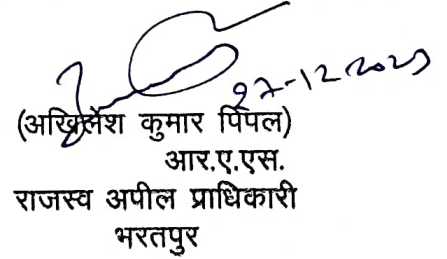 27-12-2023
(अखिलेश कुमार पिपल)
आर.ए.एस.
राजस्व अपील प्राधिकारी
भरतपुर